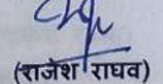 (राजेश राघव)